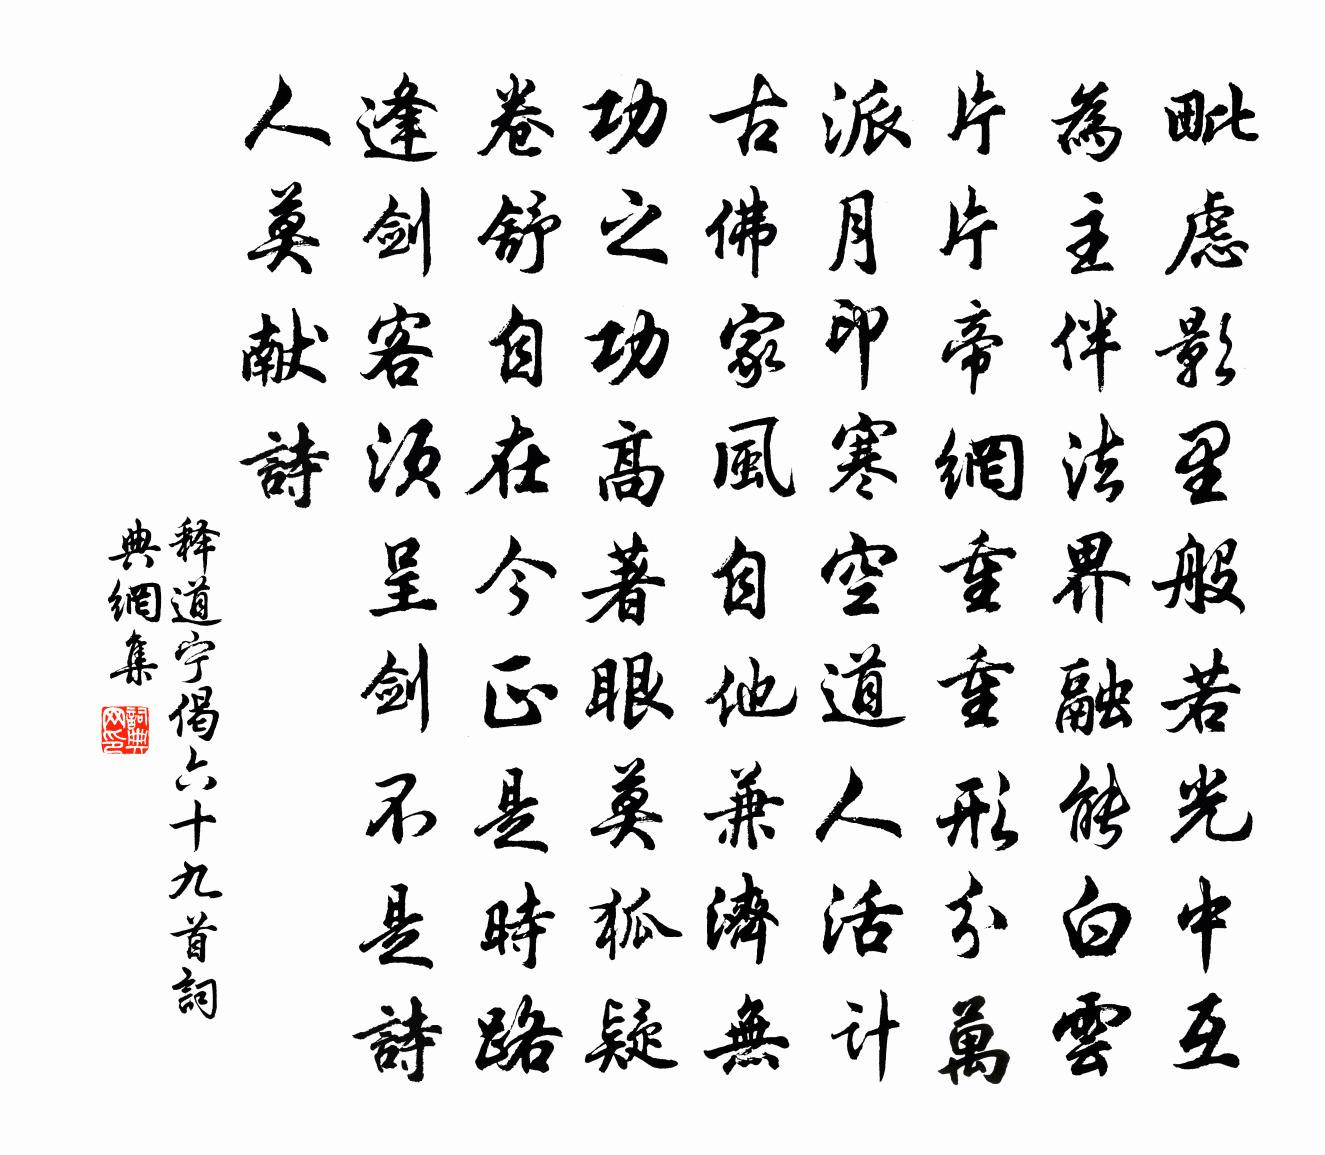 毗虑影里般若光中互
為主伴法界融能白雲
片片帝網重重形分萬
派月印寒空道人活计
古佛家風自他兼濟無
功之功高著眼莫狐疑
卷舒自在今正是時路
逢剑客须呈剑不是詩
人莫献詩
释道宁偈六十九首詞
典網集
詞典网印